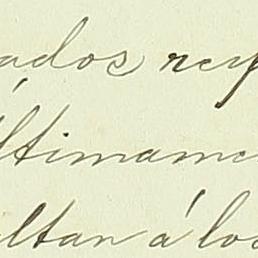 ados rey
ltimame
ultan á los